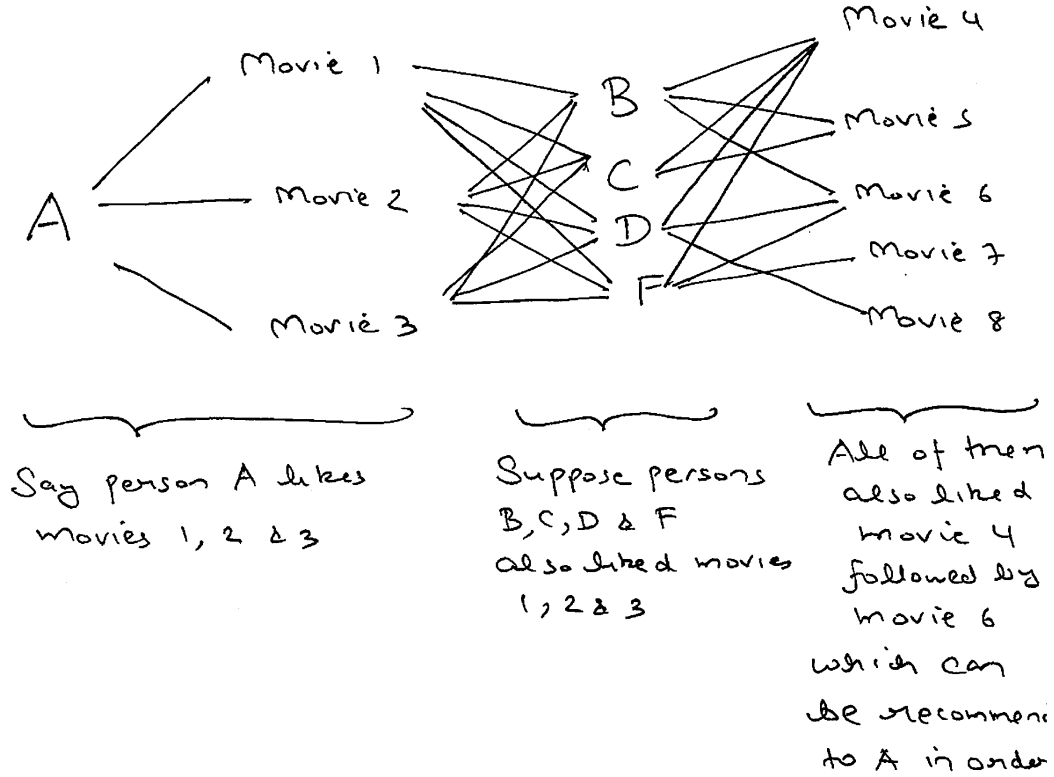 A
Movie 1
Movie 2
Movie 3
B
C
D
F
Movie 4
Movie 5
Movie 6
Movie 7
Movie 8
Say person A likes
movies 1, 2 & 3
Suppose persons
B, C, D & F
also liked movies
1, 2 & 3
All of them
also liked
movie 4
followed by
movie 6
which can
be recommend
to A in order